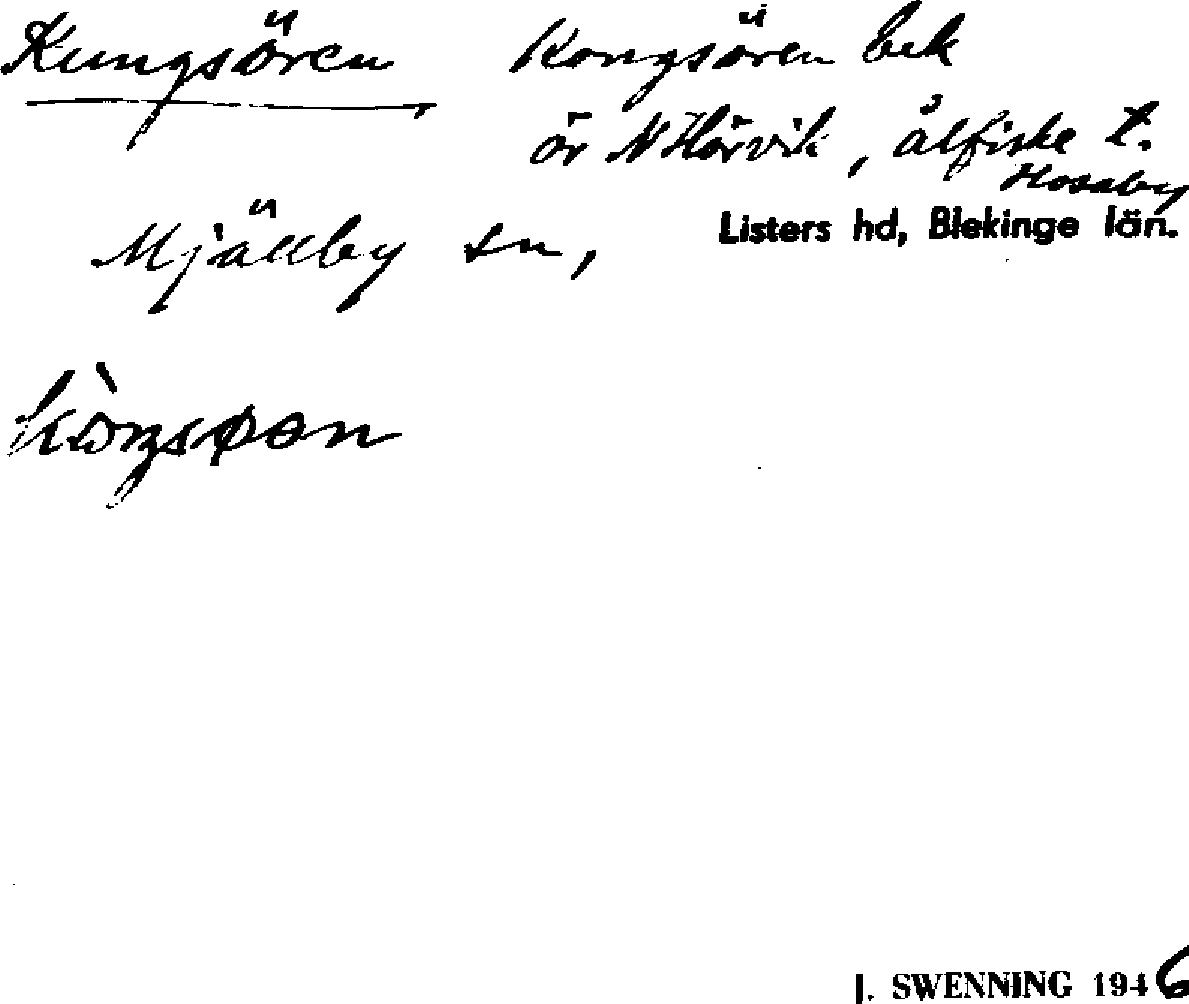 Kungsören Kongsören bek
ör N Hörvik, ålfiske t.
Hosaby
Mjällby sn, Listers hd, Blekinge län.
J. SWENNING 1946